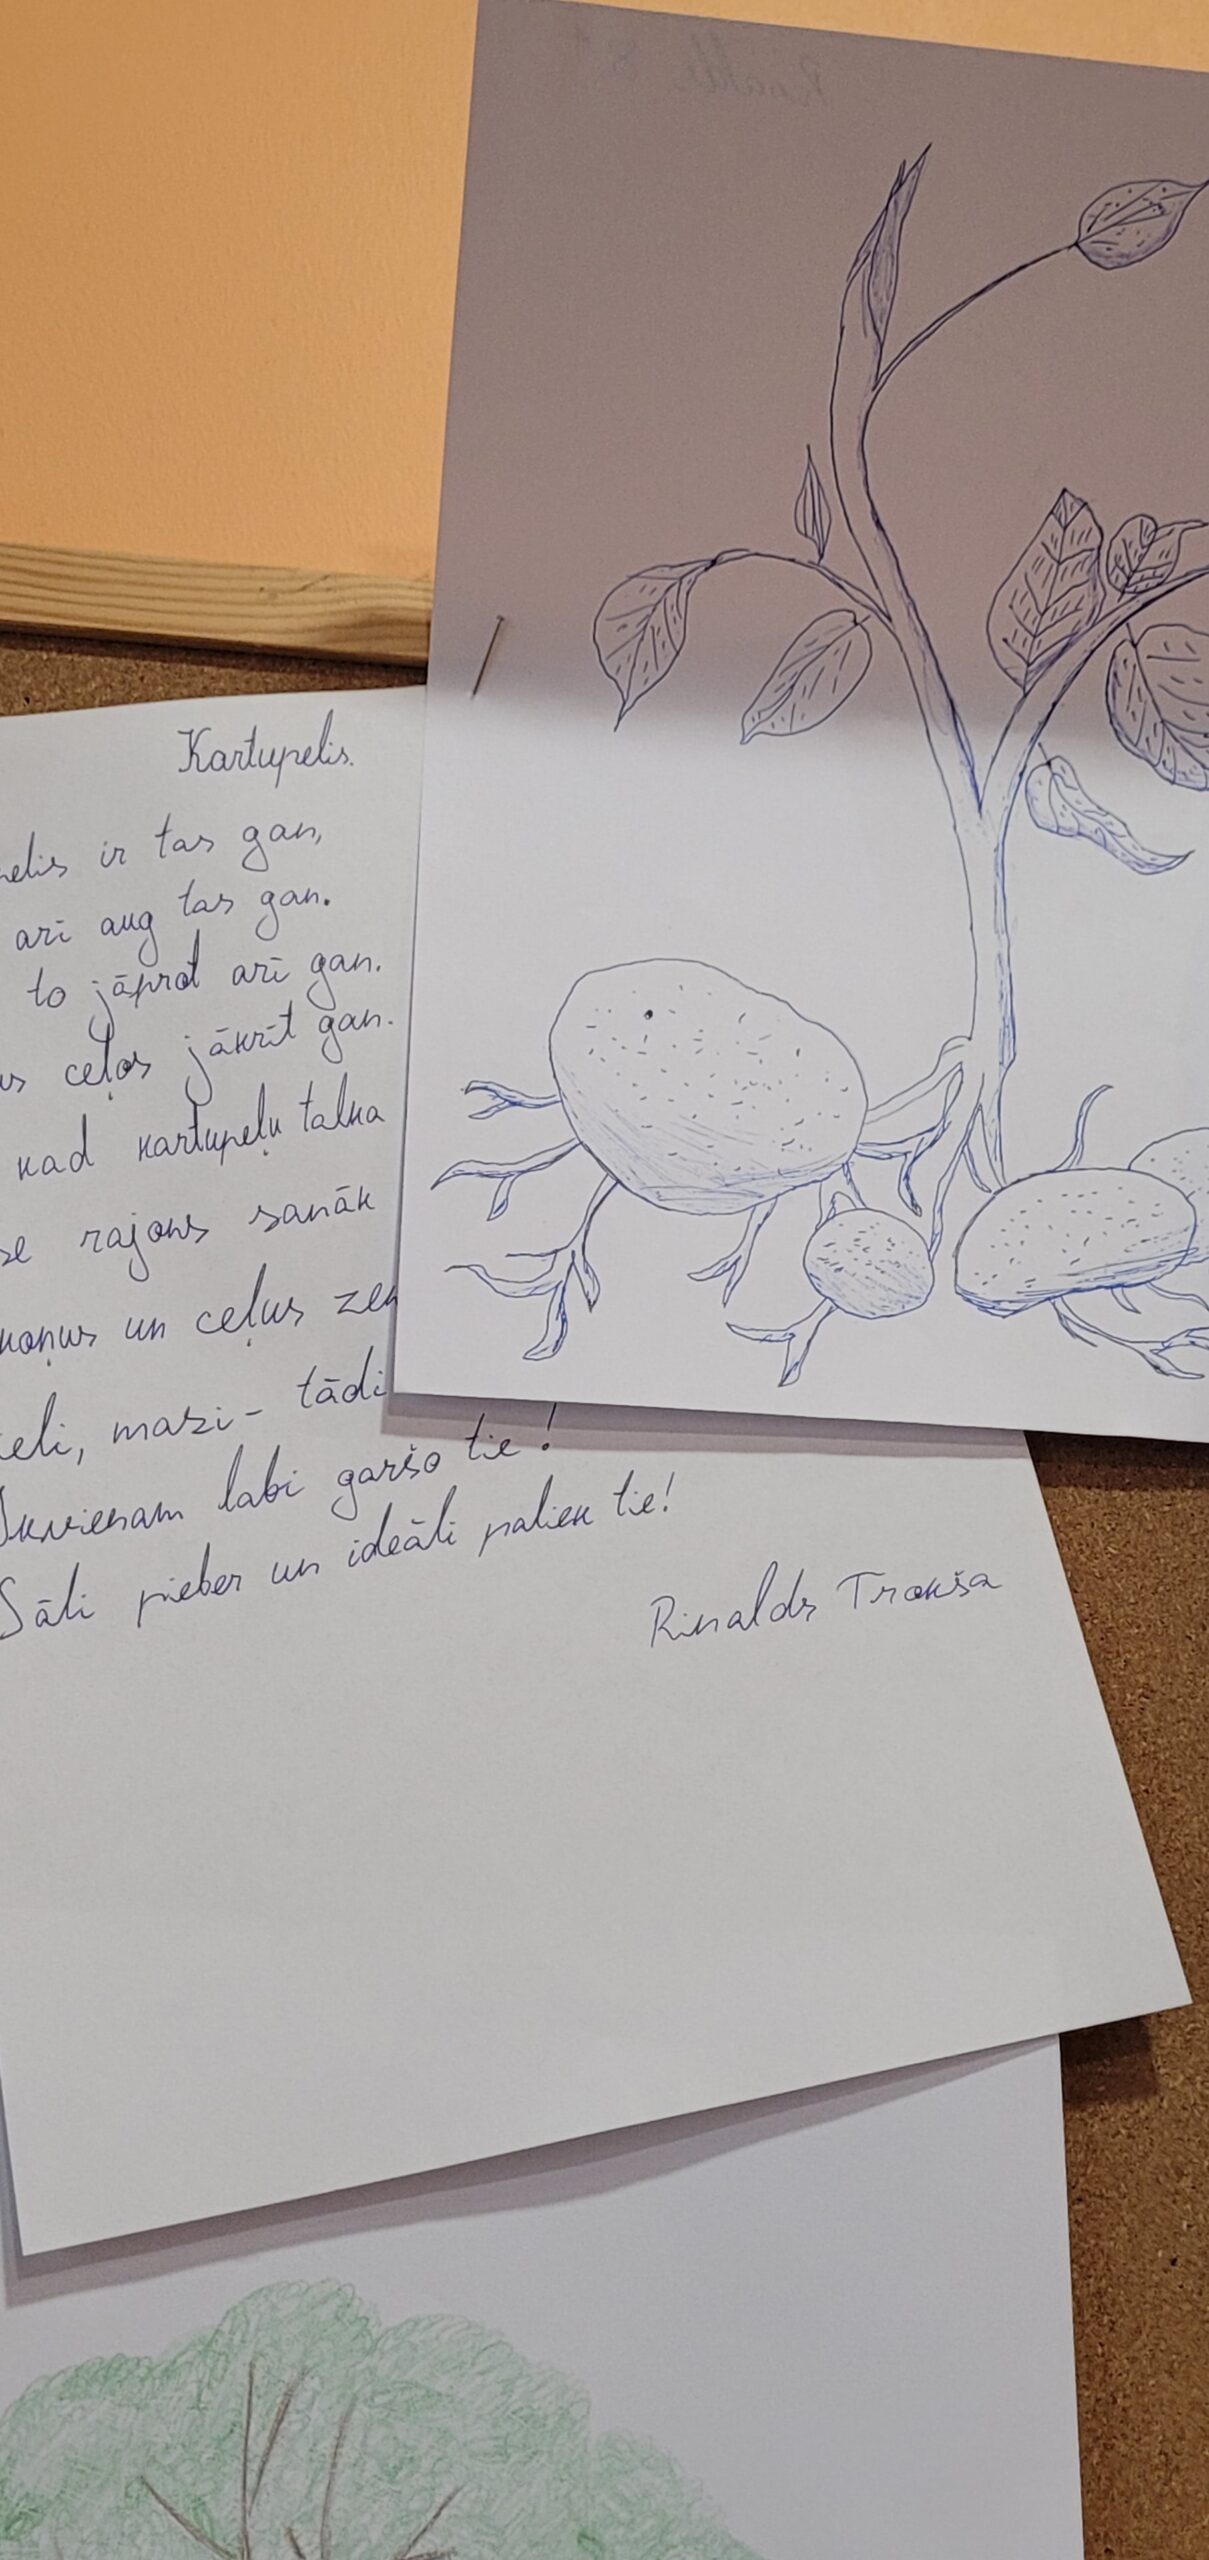 Kartupelis.
ir tas gan,
arī aug tas gan.
to jāprot arī gan.
ceļos jākrīt gan.
kad kartupeļu talka
rajons sanāk
un ceļus
mazi - tādi
Ikvienam labi garšo tie!
Sāli pieber un ideāli paliek tie!
Rinalds Trokša